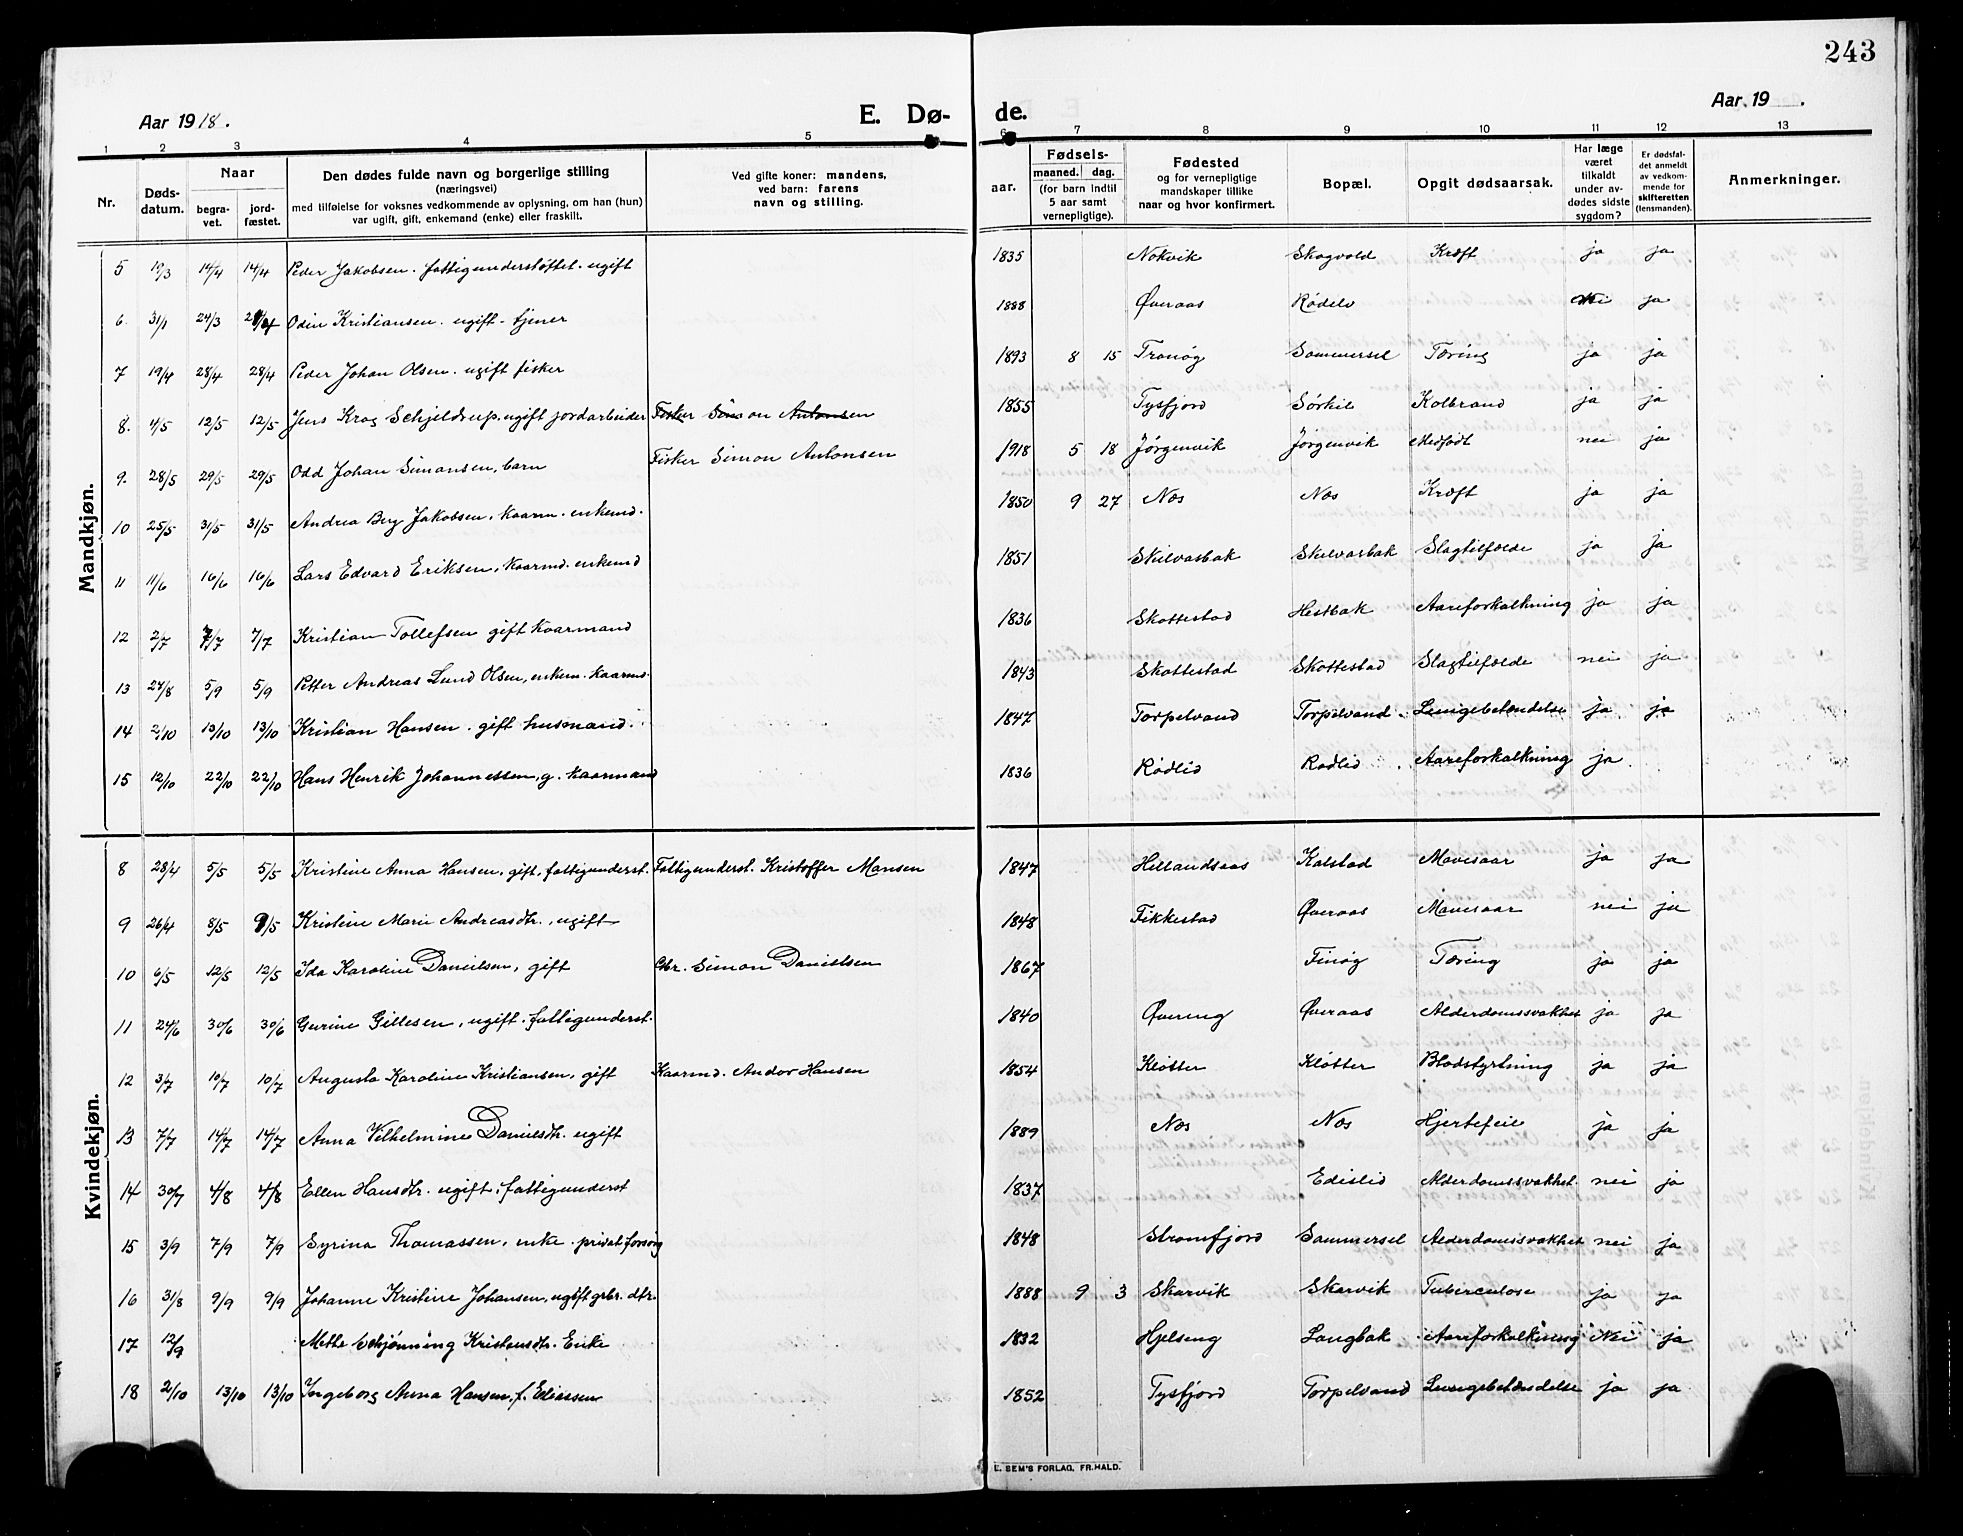 243
Aar 1918.
E. Dø- de.
Aar 19 .
1 2 3 4 5 6 7 8 9 10 11 12 13
Nr.
Døds-datum.
Naar
begra-vet.
jord-fæstet.
Den dødes fulde navn og borgerlige stilling
(næringsvei)
med tilføielse for voksnes vedkommende av oplysning, om han (hun)
var ugift, gift, enkemand (enke) eller fraskilt.
Ved gifte koner: mandens,
ved barn: farens
navn og stilling.
Fødsels-
aar.
maaned.
dag.
(for barn indtil
5 aar samt
vernepligtige).
Fødested
og for vernepligtige
mandskaper tillike
naar og hvor konfirmert.
Bopæl.
Opgit dødsaarsak.
Har læge
været
tilkaldt
under av-
dødes sidste
sygdom?
Er dødsfal-
det anmeldt
av vedkom-
mende for
skifteretten
(lensmanden).
Anmerkninger.
Mandkjøn.
5 19/3 14/4 14/4 Peder Jakobsen. fattigunderstøttet. ugift 1835 Nokvik Skogvold Kræft ja ja
6 31/1 24/3 Odin Kristiansen. ugift - tjener 1888 Øveraas Rødelv ja
7 19/4 28/4 28/4 Peder Johan Olsen. ugift fisker 1893 8 15 Tranøy Sommersel Tæring ja ja
8. 1/5 12/5 12/5 Jens Krog Schjeldrup. ugift jordarbeider Fisker Simon Antonsen 1855 Tysfjord Sørkil Kolbrand ja ja
9. 28/5 29/5 29/5 Odd Johan Simonsen, barn Fisker Simon Antonsen 1918 5 18 Jørgenvik Jørgenvik Medfødt nei ja
10 25/5 31/5 31/5 Andrea Berg Jakobsen, Kaarm. enkemd. 1850 9 27 Nes Nes Kræft ja ja
11 11/6 16/6 16/6 Lars Edvard Eriksen, Kaarmd. enkemd 1851 Skilvasbak Skilvasbak Slagtilfælde ja ja
12 2/7 7/7 7/7 Kristian Tollefsen gift Kaarmand 1836 Skottestad Hestbak Aareforkalkning ja ja
13 27/8 5/9 5/9 Petter Andreas Lund Olsen, enkem. Kaarmd. 1843 Skottestad Skottestad Slagtilfælde nei ja
14 2/10 13/10 13/10 Kristian Hansen. gift husmand. 1847 Torpelvand Torpelvand. Lungebetændelse ja ja
15 12/10 22/10 22/10 Hans Henrik Johannessen, g. Kaarmand 1836 Rødlid Rødlid Aareforkalkning ja.
Kvindekjøn.
8 28/4 5/5 5/5 Kristine Anna Hansen, gift, fattigunderst. Fattigunderst. Kristoffer Hansen 1847 Hellandsaas Kalstad Mavesaar ja ja
9 26/4 8/5 9/5 Kristine Marie Andreasdtr., ugift 1848 Fikkestad Øveraas Mavesaar nei ja
10 6/5 12/5 12/5 Ida Karoline Danielsen, gift Gbr. Simon Danielsen 1867 Finøy Tæring ja ja
11 24/6 30/6 30/6 Gurine Gillesen, ugift. fattigunderst. 1840 Øvereng Øveraas Alderdomssvakhet ja ja
12 3/7 10/7 10/7 Augusta Karoline Kristiansen, gift Kaarmd. Andor Hansen 1854 Kløtter Kløtter Blodstyrtning ja ja
13 7/7 14/7 14/7 Anna Vilhelmine Danielsdtr. ugift 1889 Nes Nes Hjertefeil ja ja
14 30/7 4/8 4/8 Ellen Hansdtr. ugift, fattigunderst 1837 Edislid Alderdomssvakhet. nei ja
15 3/9 7/9 7/9 Syrina Thomassen, enke. privat forsørg 1848 Strømfjord Sommersel Alderdomssvakhet nei ja
16 31/8 9/9 9/9 Johanne Kristine Johansen, ugift gbr. dtr. 1888 9 3 Skarvik Skarvik Tuberculose ja ja
17 12/9 Mette Schjønning Kristensdtr. Enke 1832 Hjelseng Langbak Aareforkalkning Nei ja
18 2/10 13/10 13/10 Ingeborg Anna Hansen, f. Eliassen 1852 Tysfjord Torpelvand Lungebetændelse ja ja
E. SEM'S FORLAG, FR.HALD.